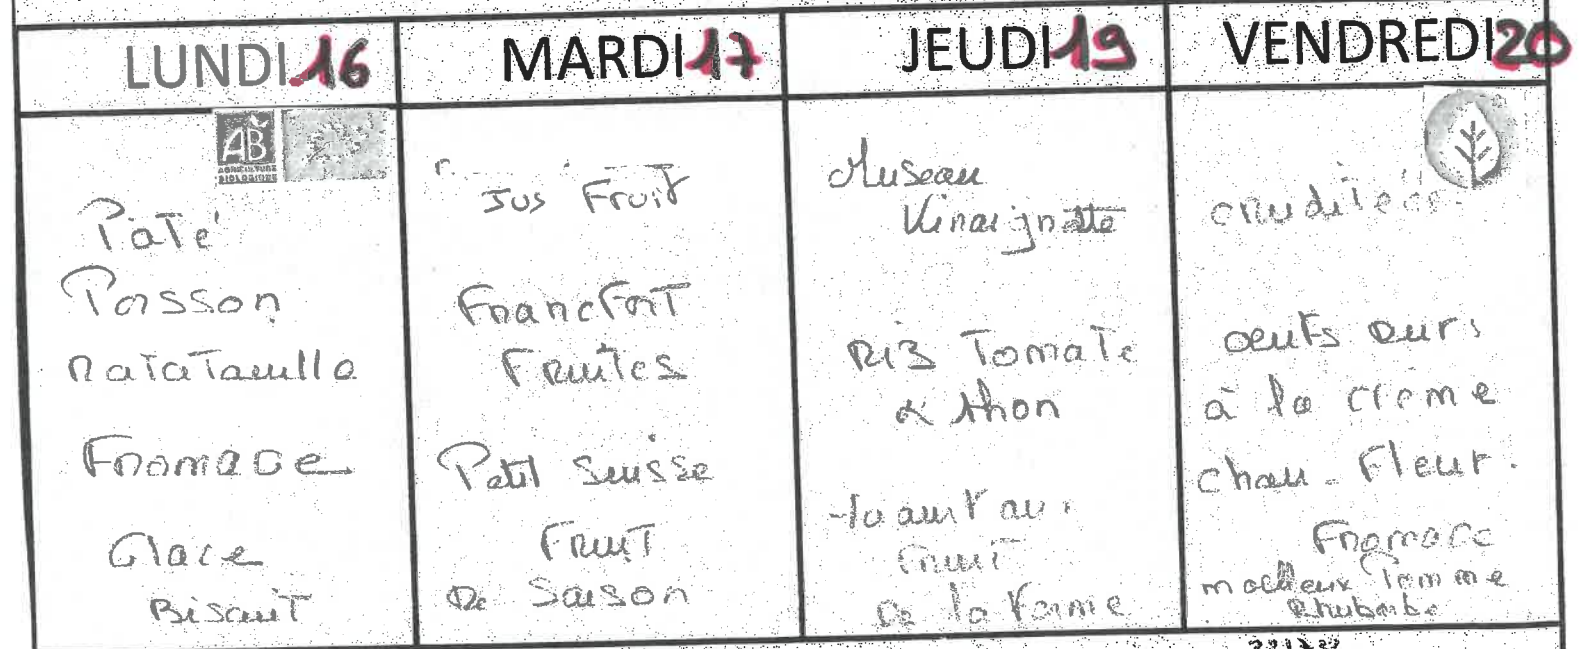 LUNDI 16
AB
AGRICULTURE
BIOLOGIQUE
Pâté
Poisson
Ratatouille
Fromage
Glace
Biscuit
MARDI 17
Jus Fruit
Francfort
Frites
Petit Suisse
Fruit
de Saison
JEUDI 19
Museau
Vinaigrette
Riz Tomate
& thon
Yaourt aux
Fruit
de la Ferme
VENDREDI 20
crudités
oeufs durs
à la crème
chou-Fleur.
Fromage
moelleux Pomme
Rhubarbe